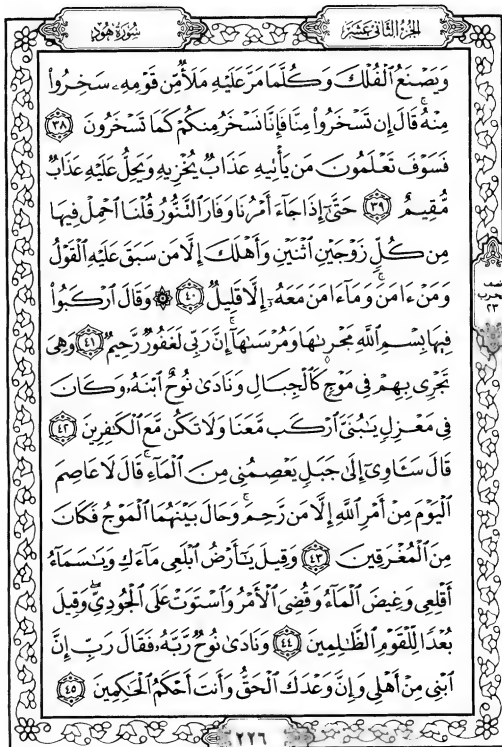 الجزء الثاني عشر
سورة هود
وَيَصْنَعُ ٱلْفُلْكَ وَكُلَّمَا مَرَّ عَلَيْهِ مَلَأٌ مِّن قَوْمِهِۦ سَخِرُوا۟
مِنْهُ ۚ قَالَ إِن تَسْخَرُوا۟ مِنَّا فَإِنَّا نَسْخَرُ مِنكُمْ كَمَا تَسْخَرُونَ ٣٨
فَسَوْفَ تَعْلَمُونَ مَن يَأْتِيهِ عَذَابٌ يُخْزِيهِ وَيَحِلُّ عَلَيْهِ عَذَابٌ
مُّقِيمٌ ٣٩ حَتَّىٰٓ إِذَا جَآءَ أَمْرُنَا وَفَارَ ٱلتَّنُّورُ قُلْنَا ٱحْمِلْ فِيهَا
مِن كُلٍّ زَوْجَيْنِ ٱثْنَيْنِ وَأَهْلَكَ إِلَّا مَن سَبَقَ عَلَيْهِ ٱلْقَوْلُ
وَمَنْ ءَامَنَ ۚ وَمَآ ءَامَنَ مَعَهُۥٓ إِلَّا قَلِيلٌ ٤٠ ۞ وَقَالَ ٱرْكَبُوا۟
فِيهَا بِسْمِ ٱللَّهِ مَجْر۪ىٰهَا وَمُرْسَىٰهَآ ۚ إِنَّ رَبِّى لَغَفُورٌ رَّحِيمٌ ٤١ وَهِىَ
تَجْرِى بِهِمْ فِى مَوْجٍ كَٱلْجِبَالِ وَنَادَىٰ نُوحٌ ٱبْنَهُۥ وَكَانَ
فِى مَعْزِلٍ يَٰبُنَىَّ ٱرْكَب مَّعَنَا وَلَا تَكُن مَّعَ ٱلْكَٰفِرِينَ ٤٢
قَالَ سَـَٔاوِىٓ إِلَىٰ جَبَلٍ يَعْصِمُنِى مِنَ ٱلْمَآءِ ۚ قَالَ لَا عَاصِمَ
ٱلْيَوْمَ مِنْ أَمْرِ ٱللَّهِ إِلَّا مَن رَّحِمَ ۚ وَحَالَ بَيْنَهُمَا ٱلْمَوْجُ فَكَانَ
مِنَ ٱلْمُغْرَقِينَ ٤٣ وَقِيلَ يَٰٓأَرْضُ ٱبْلَعِى مَآءَكِ وَيَٰسَمَآءُ
أَقْلِعِى وَغِيضَ ٱلْمَآءُ وَقُضِىَ ٱلْأَمْرُ وَٱسْتَوَتْ عَلَى ٱلْجُودِىِّ ۖ وَقِيلَ
بُعْدًا لِّلْقَوْمِ ٱلظَّٰلِمِينَ ٤٤ وَنَادَىٰ نُوحٌ رَّبَّهُۥ فَقَالَ رَبِّ إِنَّ
ٱبْنِى مِنْ أَهْلِى وَإِنَّ وَعْدَكَ ٱلْحَقُّ وَأَنتَ أَحْكَمُ ٱلْحَٰكِمِينَ ٤٥
نصف
حزب
٢٣
٢٢٦